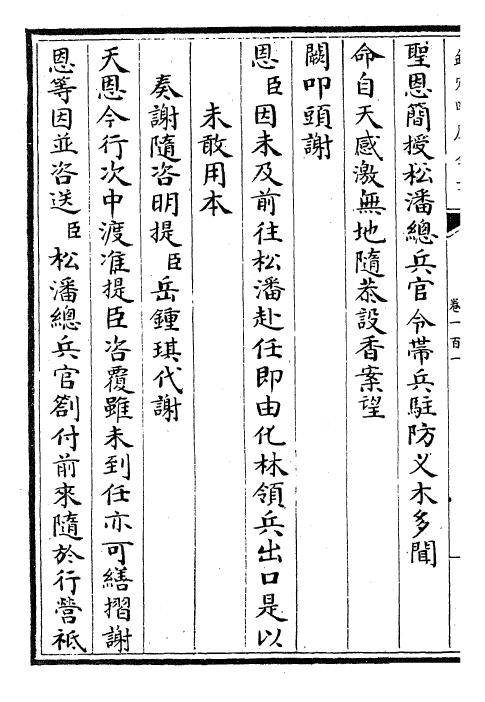 卷一百一
聖恩簡授松潘總兵官令帶兵駐防义木多聞
命自天感激無地隨恭設香案望
闕叩頭謝
恩臣因未及前往松潘赴任即由化林領兵出口是以
未敢用本
奏謝隨咨明提臣岳鍾琪代謝
天恩今行次中渡准提臣咨覆雖未到任亦可繕摺謝
恩等因並咨送臣松潘總兵官劄付前來隨於行營祗